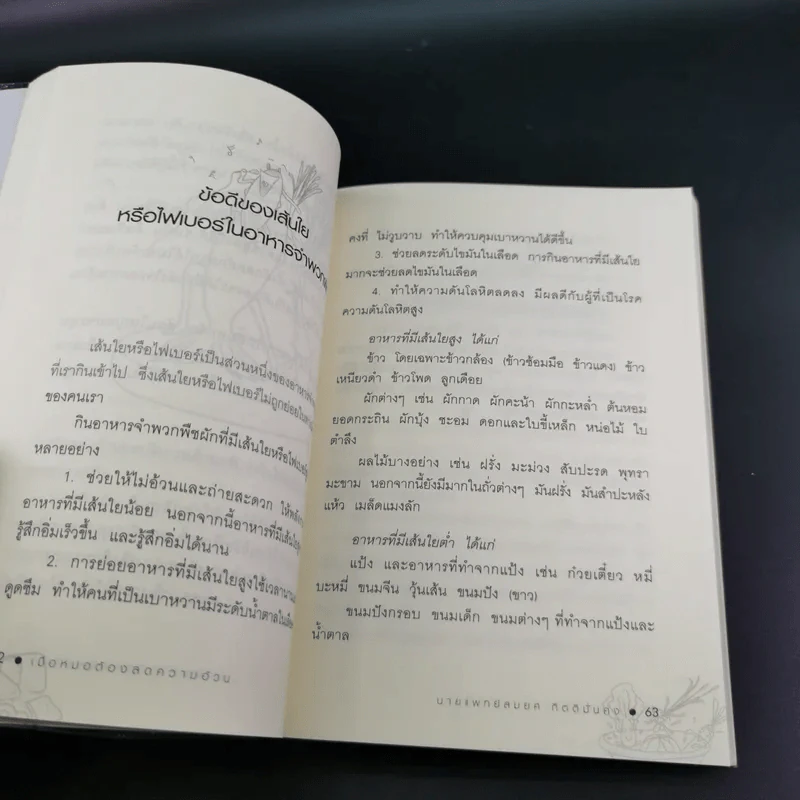 ข้อดีของเส้นใย
หรือไฟเบอร์ในอาหารจำพวก
เส้นใยหรือไฟเบอร์เป็นส่วนหนึ่งของอาหาร
ที่เรากินเข้าไป ซึ่งเส้นใยหรือไฟเบอร์ไม่ถูกย่อย
ของคนเรา
กินอาหารจำพวกพืชผักที่มีเส้นใยหรือไฟเบอร์
หลายอย่าง
1. ช่วยให้ไม่อ้วนและถ่ายสะดวก
อาหารที่มีเส้นใยน้อย นอกจากนี้อาหารที่มีเส้นใย
รู้สึกอิ่มเร็วขึ้น และรู้สึกอิ่มได้นาน
2. การย่อยอาหารที่มีเส้นใยสูงใช้เวลานาน
ดูดซึม ทำให้คนที่เป็นเบาหวานมีระดับน้ำตาลใน
2 ● เมื่อหมอต้องลดความอ้วน
คงที่ ไม่วูบวาบ ทำให้ควบคุมเบาหวานได้ดีขึ้น
3. ช่วยลดระดับไขมันในเลือด การกินอาหารที่มีเส้นใย
มากจะช่วยลดไขมันในเลือด
4. ทำให้ความดันโลหิตลดลง มีผลดีกับผู้ที่เป็นโรค
ความดันโลหิตสูง
อาหารที่มีเส้นใยสูง ได้แก่
ข้าว โดยเฉพาะข้าวกล้อง (ข้าวซ้อมมือ ข้าวแดง) ข้าว
เหนียวดำ ข้าวโพด ลูกเดือย
ผักต่างๆ เช่น ผักกาด ผักคะน้า ผักกะหล่ำ ต้นหอม
ยอดกระถิน ผักบุ้ง ชะอม ดอกและใบขี้เหล็ก หน่อไม้ ใบ
ตำลึง
ผลไม้บางอย่าง เช่น ฝรั่ง มะม่วง สับปะรด พุทรา
มะขาม นอกจากนี้ยังมีมากในถั่วต่างๆ มันฝรั่ง มันสำปะหลัง
แห้ว เมล็ดแมงลัก
อาหารที่มีเส้นใยต่ำ ได้แก่
แป้ง และอาหารที่ทำจากแป้ง เช่น ก๋วยเตี๋ยว หมี่
บะหมี่ ขนมจีน วุ้นเส้น ขนมปัง (ขาว)
ขนมปังกรอบ ขนมเค้ก ขนมต่างๆ ที่ทำจากแป้งและ
น้ำตาล
นายแพทย์สมยศ กิตติมั่นคง ● 63